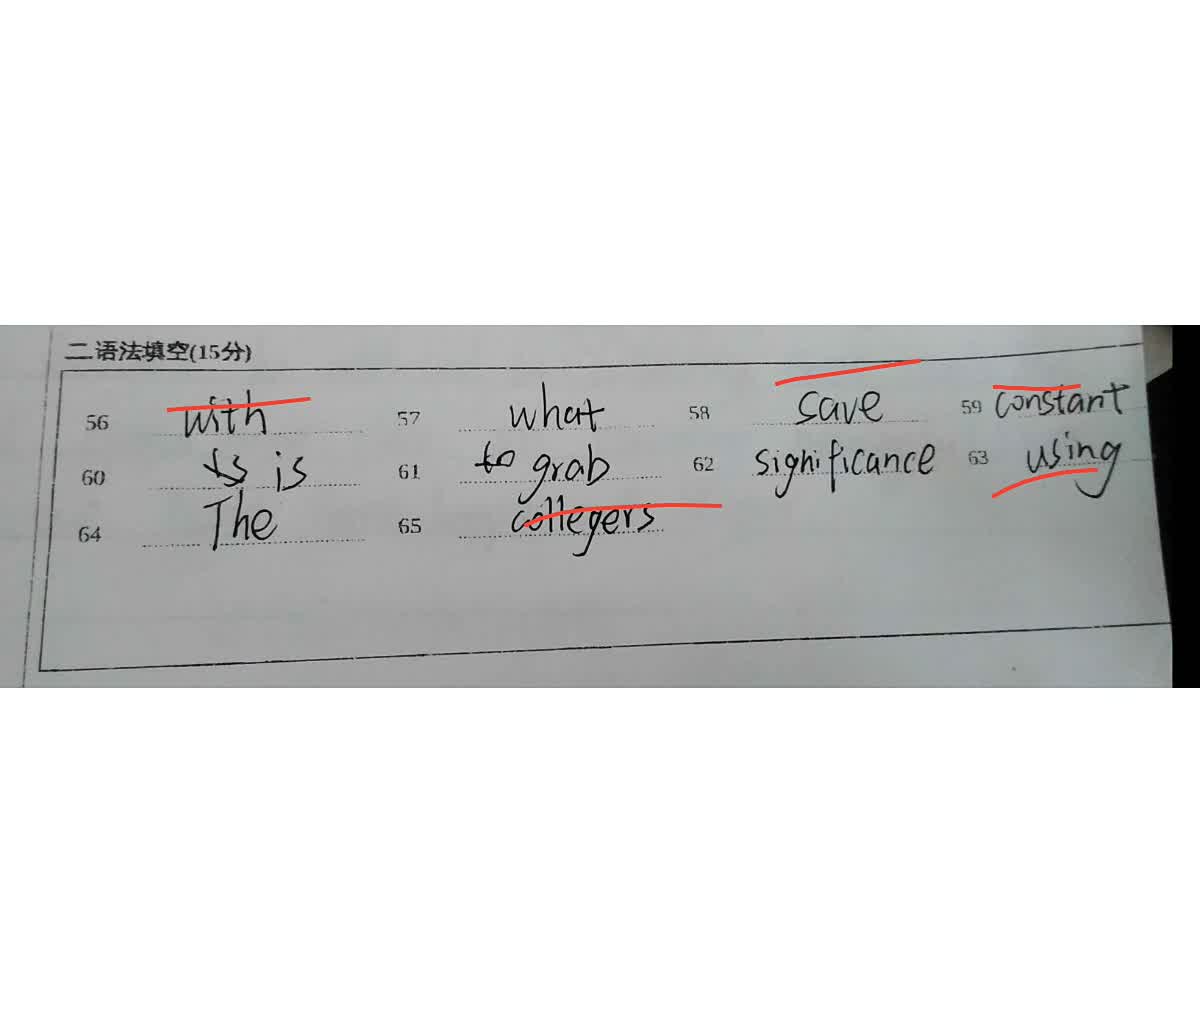 二.语法填空(15分)
56 with 57 what 58 save 59 constant
60 is 61 to grab 62 significance 63 using
64 The 65 collegers